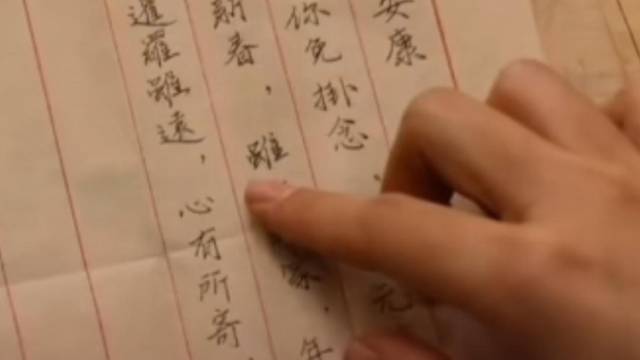 安康
你免掛念，元
新春，雖家，年
暹羅雖遠，心有所寄